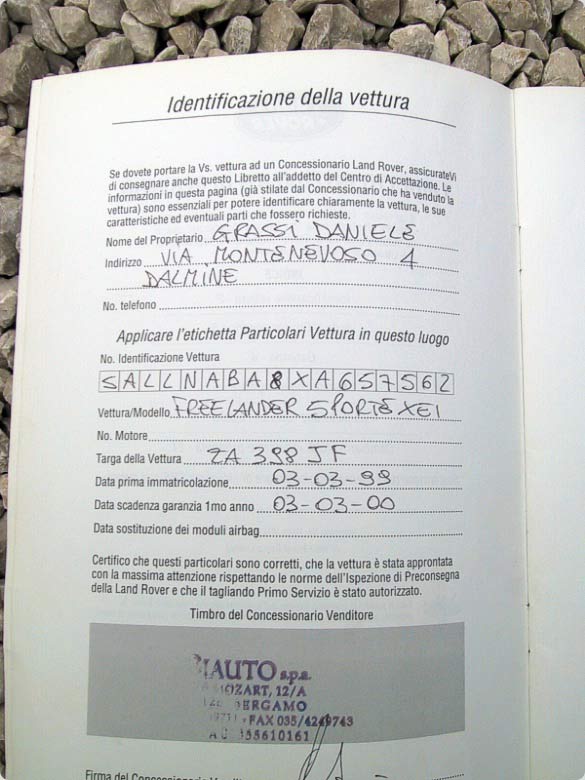 Identificazione della vettura
Se dovete portare la Vs. vettura ad un Concessionario Land Rover, assicurateVi
di consegnare anche questo Libretto all'addetto del Centro di Accettazione. Le
informazioni in questa pagina (già stilate dal Concessionario che ha venduto la
vettura) sono essenziali per potere identificare chiaramente la vettura, le sue
caratteristiche ed eventuali parti che fossero richieste.
Nome del Proprietario GRASSI DANIELE
Indirizzo VIA MONTENEVOSO 4
DALMINE
No. telefono
Applicare l'etichetta Particolari Vettura in questo luogo
No. Identificazione Vettura
SALLNABA8XA657562
Vettura/Modello FREELANDER SPORTE XEI
No. Motore
Targa della Vettura ZA 398 JF
Data prima immatricolazione 03-03-99
Data scadenza garanzia 1mo anno 03-03-00
Data sostituzione dei moduli airbag
Certifico che questi particolari sono corretti, che la vettura è stata approntata
con la massima attenzione rispettando le norme dell'Ispezione di Preconsegna
della Land Rover e che il tagliando Primo Servizio è stato autorizzato.
Timbro del Concessionario Venditore
IAUTO s.p.a.
MOZART, 12/A
BERGAMO
FAX 035/4249743
Firma del